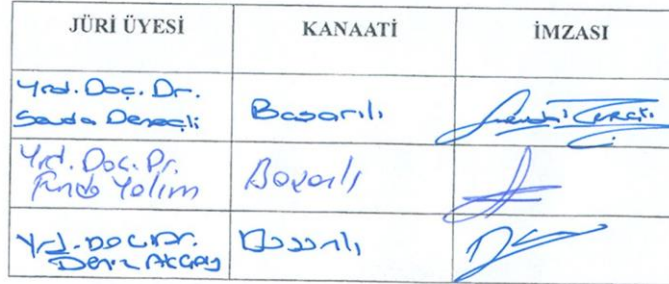 JÜRİ ÜYESİ KANAATİ İMZASI
Yrd. Doç. Dr.
Sevda Deneçli Başarılı
Yrd. Doç. Dr.
Funda Yalım Başarılı
Yrd. Doç. Dr. Başarılı
Deniz Akçay